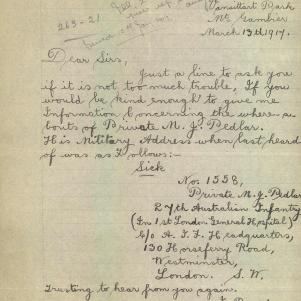 263-21
Vansittart Park
Mt Gambier
March 13th 1917.
Dear Sirs,
Just a line to ask you
if it is not too much trouble, If you
would be kind enough to give me
Information Concerning the where-a-
bouts of Private M. J. Pedlar.
His Military Address when last heard
of was as Follows:-
Sick
No. 1558,
Private M. J. Pedlar
27th Australian Infantry
(In 1st London General Hospital)
C/o A. I. F. Headquarters,
130 Horseferry Road,
Westminster,
London. S. W.
Trusting to hear from you again.